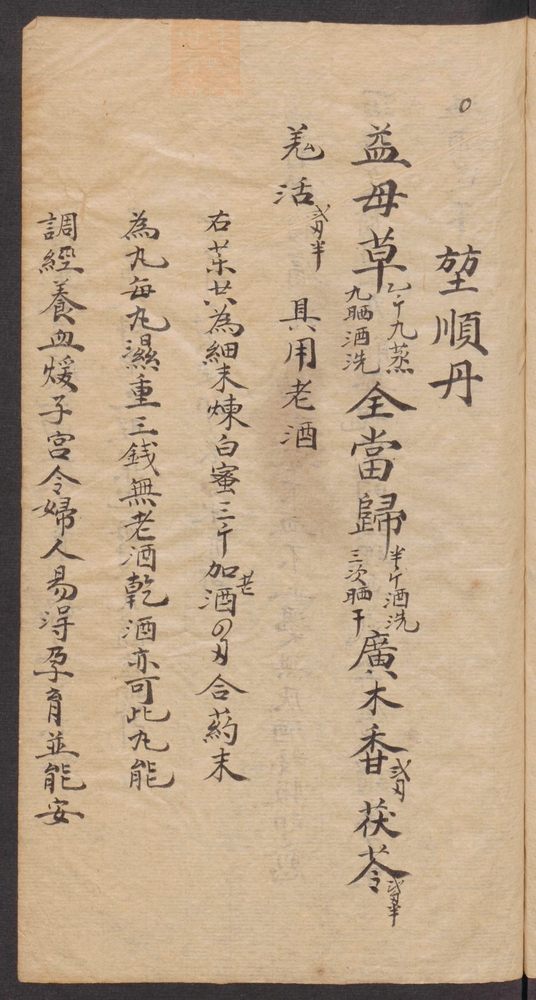 堃順丹
益母草乙斤九蒸九晒酒洗全當歸半斤酒洗三次晒干廣木香弍刄茯苓弍刄半
羗活弍刄半 具用老酒
右藥共為細末煉白蜜三斤加老酒四刄合葯末
為丸每丸濕重三銭無老酒乾酒亦可此丸能
調經養血煖子宮令婦人易淂孕育並能安